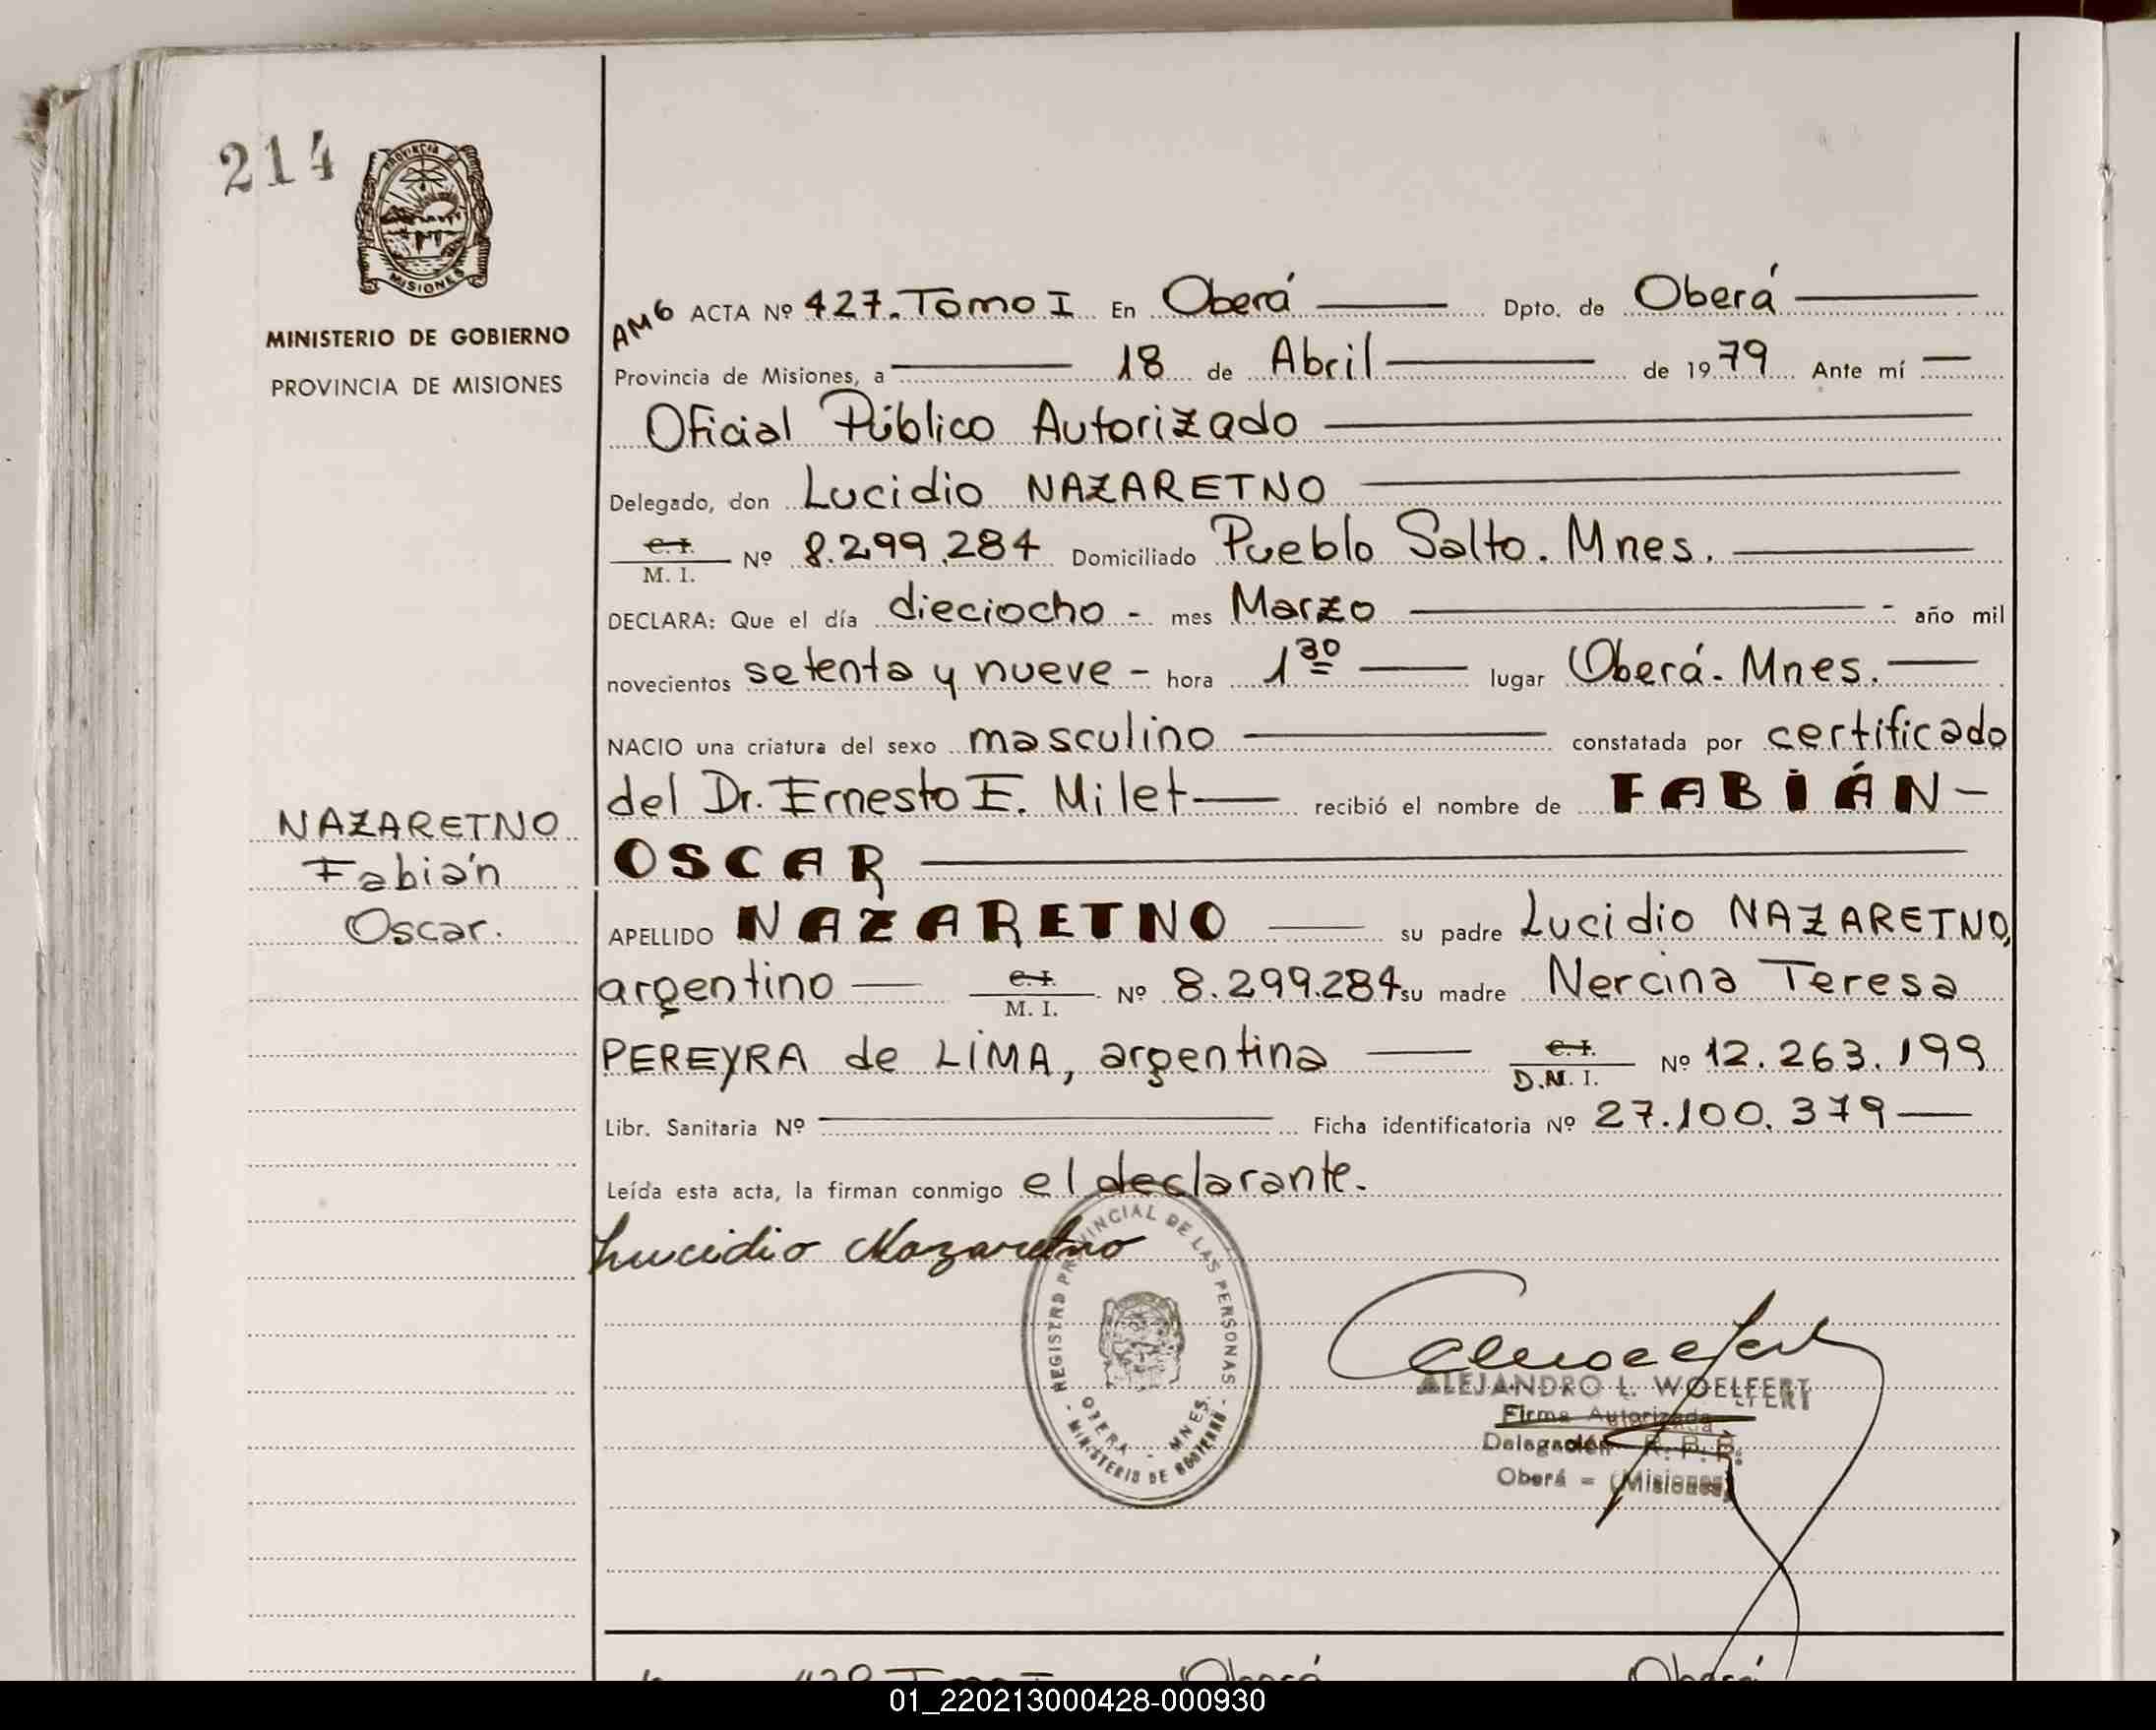 214
PROVINCIA
MISIONES
MINISTERIO DE GOBIERNO
PROVINCIA DE MISIONES
AM6 ACTA Nº 427. Tomo I En Oberá Dpto. de Oberá
Provincia de Misiones, a 18 de Abril de 1979 Ante mí
Oficial Público Autorizado
Delegado, don Lucidio NAZARETNO
C. I.
M. I. Nº 8.299.284 Domiciliado Pueblo Salto. Mnes.
DECLARA: Que el día dieciocho - mes Marzo - año mil
novecientos setenta y nueve - hora 1 30 lugar Oberá. Mnes.
NACIO una criatura del sexo masculino constatada por certificado
del Dr. Ernesto E. Milet recibió el nombre de FABIÁN-
OSCAR
NAZARETNO
Fabián
Oscar.
APELLIDO NAZARETNO su padre Lucidio NAZARETNO,
argentino C. I.
M. I. Nº 8.299.284 su madre Nercina Teresa
PEREYRA de LIMA, argentina C. I.
D.N. I. Nº 12.263.199
Libr. Sanitaria Nº Ficha identificatoria Nº 27.100.379
Leída esta acta, la firman conmigo el declarante.
Lucidio Nazaretno
REGISTRO PROVINCIAL DE LAS PERSONAS
OBERA - MNES.
- MINISTERIO DE GOBIERNO -
ALEJANDRO L. WOELFERT
Firma Autorizada
Delegación R. P. P.
Oberá = (Misiones)
428 Tomo I Oberá Oberá
01_220213000428-000930